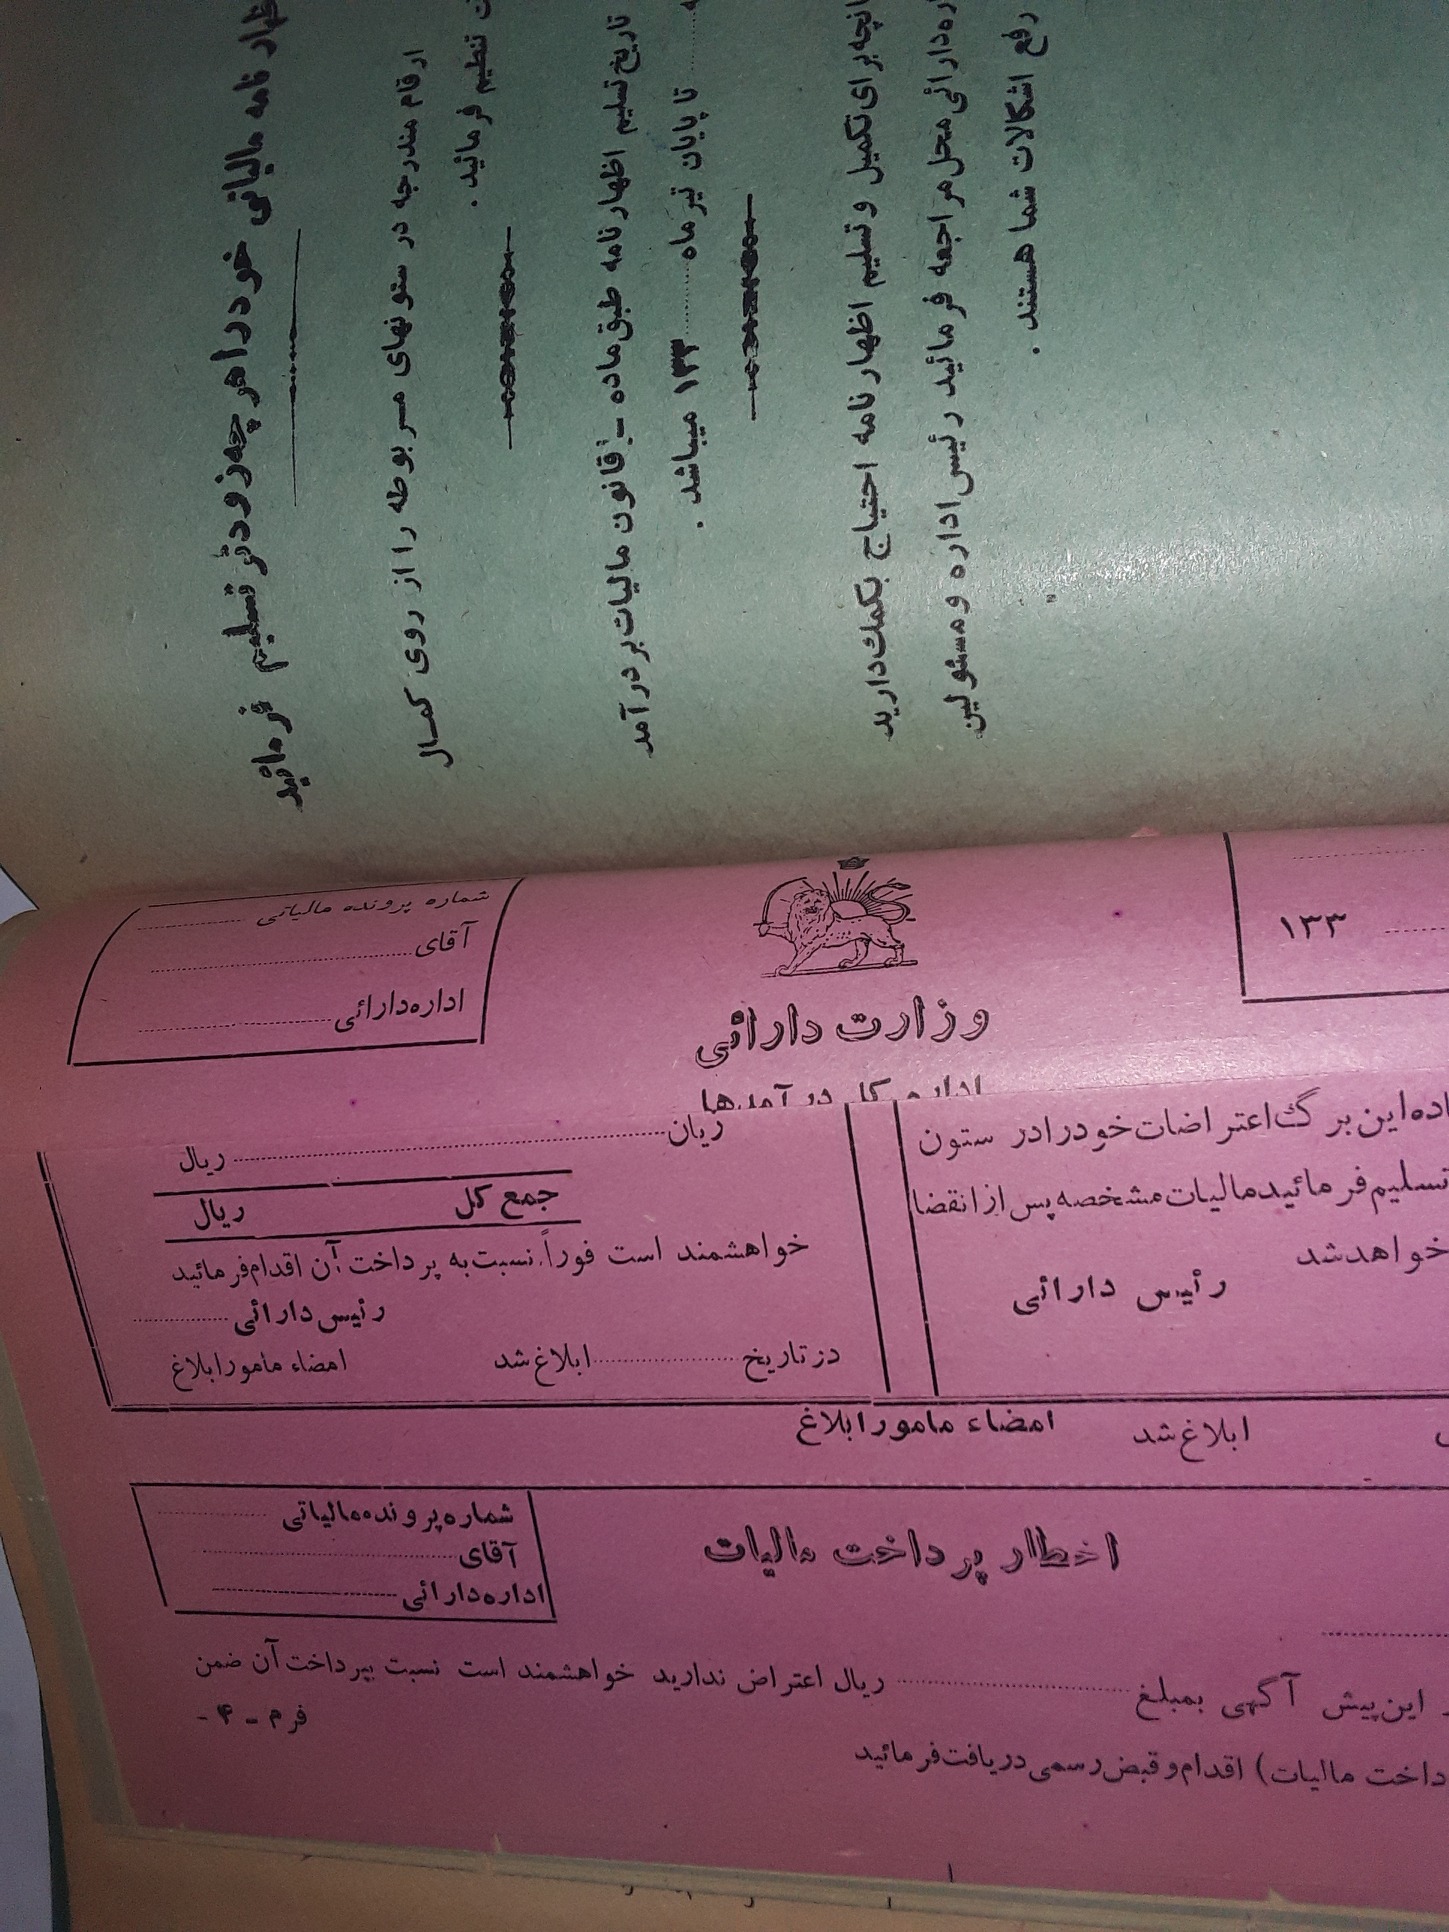 ظهار نامه مالیاتی خود را هر چه زودتر تسلیم فرمائید
ارقام مندرجه در ستونهای مربوطه را از روی کمال
ت تنظیم فرمائید .
تاریخ تسلیم اظهار نامه طبق ماده ـ قانون مالیات بر درآمد
تا پایان تیر ماه ........ ۱۳۳ میباشد .
انچه برای تکمیل و تسلیم اظهار نامه احتیاج بکمک دارید
ره دارائی محل مراجعه فرمائید رئیس اداره و مسئولین
رفع اشکالات شما هستند .
شماره پرونده مالیاتی ........
آقای ........
اداره دارائی ........
۱۳۳ ........
وزارت دارائی
اداره کل درآمدها
اده این برگ اعتراضات خود را در ستون
تسلیم فرمائید مالیات مشخصه پس از انقضا
خواهد شد
رئیس دارائی
زیان ........ ریال
جمع کل ریال
خواهشمند است فوراً نسبت به پرداخت آن اقدام فرمائید
رئیس دارائی ........
در تاریخ ........ ابلاغ شد امضاء مامور ابلاغ
ابلاغ شد امضاء مامور ابلاغ
شماره پرونده مالیاتی ........
آقای ........
اداره دارائی ........
اخطار پرداخت مالیات
این پیش آگهی بمبلغ ........ ریال اعتراض ندارید خواهشمند است نسبت بپرداخت آن ضمن
داخت مالیات) اقدام و قبض رسمی دریافت فرمائید
فرم ـ ۴ -